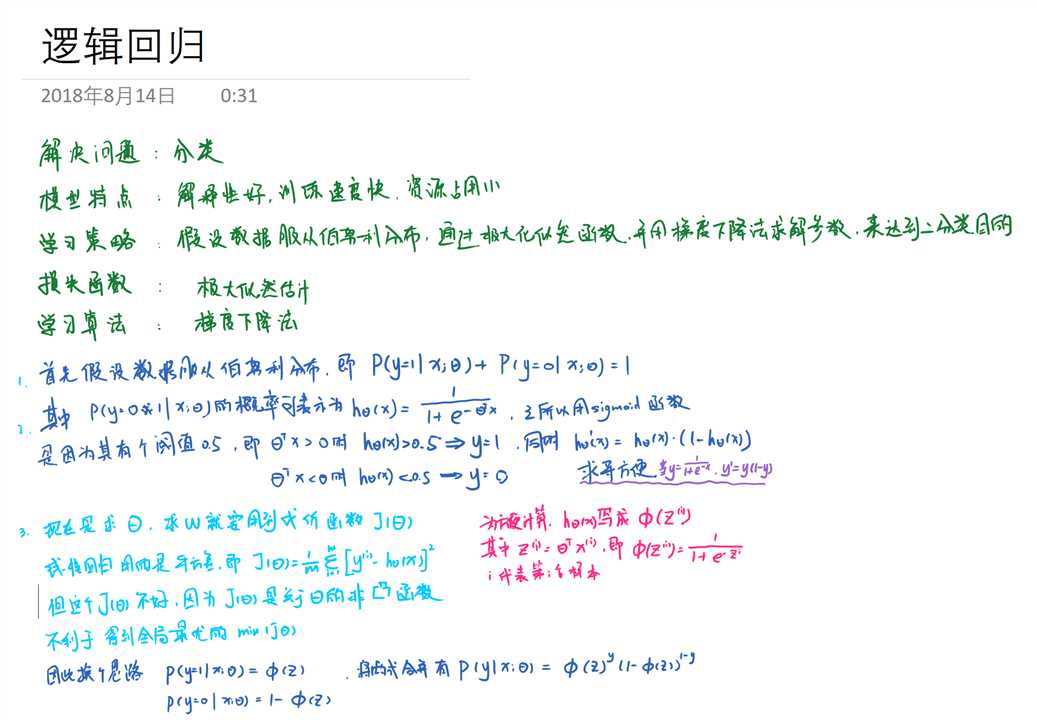 逻辑回归
2018年8月14日 0:31
解决问题 : 分类
模型特点 : 解释性好, 训练速度快, 资源占用小
学习策略 : 假设数据服从伯努利分布, 通过极大化似然函数, 并用梯度下降法求解参数, 来达到二分类目的
损失函数 : 极大似然估计
学习算法 : 梯度下降法
1. 首先假设数据服从伯努利分布, 即 P(y=1|x;θ) + P(y=0|x;θ) = 1
其中 P(y=1|x;θ)的概率可表示为 hθ(x) = 1/(1+e^{-θᵀx}), 之所以用sigmoid函数
2. 是因为其有个阈值0.5, 即 θᵀx>0时 hθ(x)>0.5 ⇒ y=1, 同时 hθ'(x) = hθ(x)·(1-hθ(x))
θᵀx<0时 hθ(x)<0.5 → y=0 求导方便 当y=1/(1+e^{-x}), y'=y(1-y)
3. 现在是求θ, 求W就要用到代价函数 J(θ)
线性回归用的是平方差, 即 J(θ)=1/m Σ[y⁽ⁱ⁾-hθ(x)]²
但这个J(θ)不好, 因为J(θ)是关于θ的非凸函数
不利于得到全局最优的 min J(θ)
为方便计算, hθ(x)写成 Φ(z⁽ⁱ⁾)
其中 z⁽ⁱ⁾=θᵀx⁽ⁱ⁾, 即 Φ(z⁽ⁱ⁾)=1/(1+e^{-zⁱ})
i代表第i个样本
因此换个思路 P(y=1|x;θ) = Φ(z) , 将两式合并有 P(y|x;θ) = Φ(z)^y (1-Φ(z))^{1-y}
P(y=0|x;θ) = 1-Φ(z)